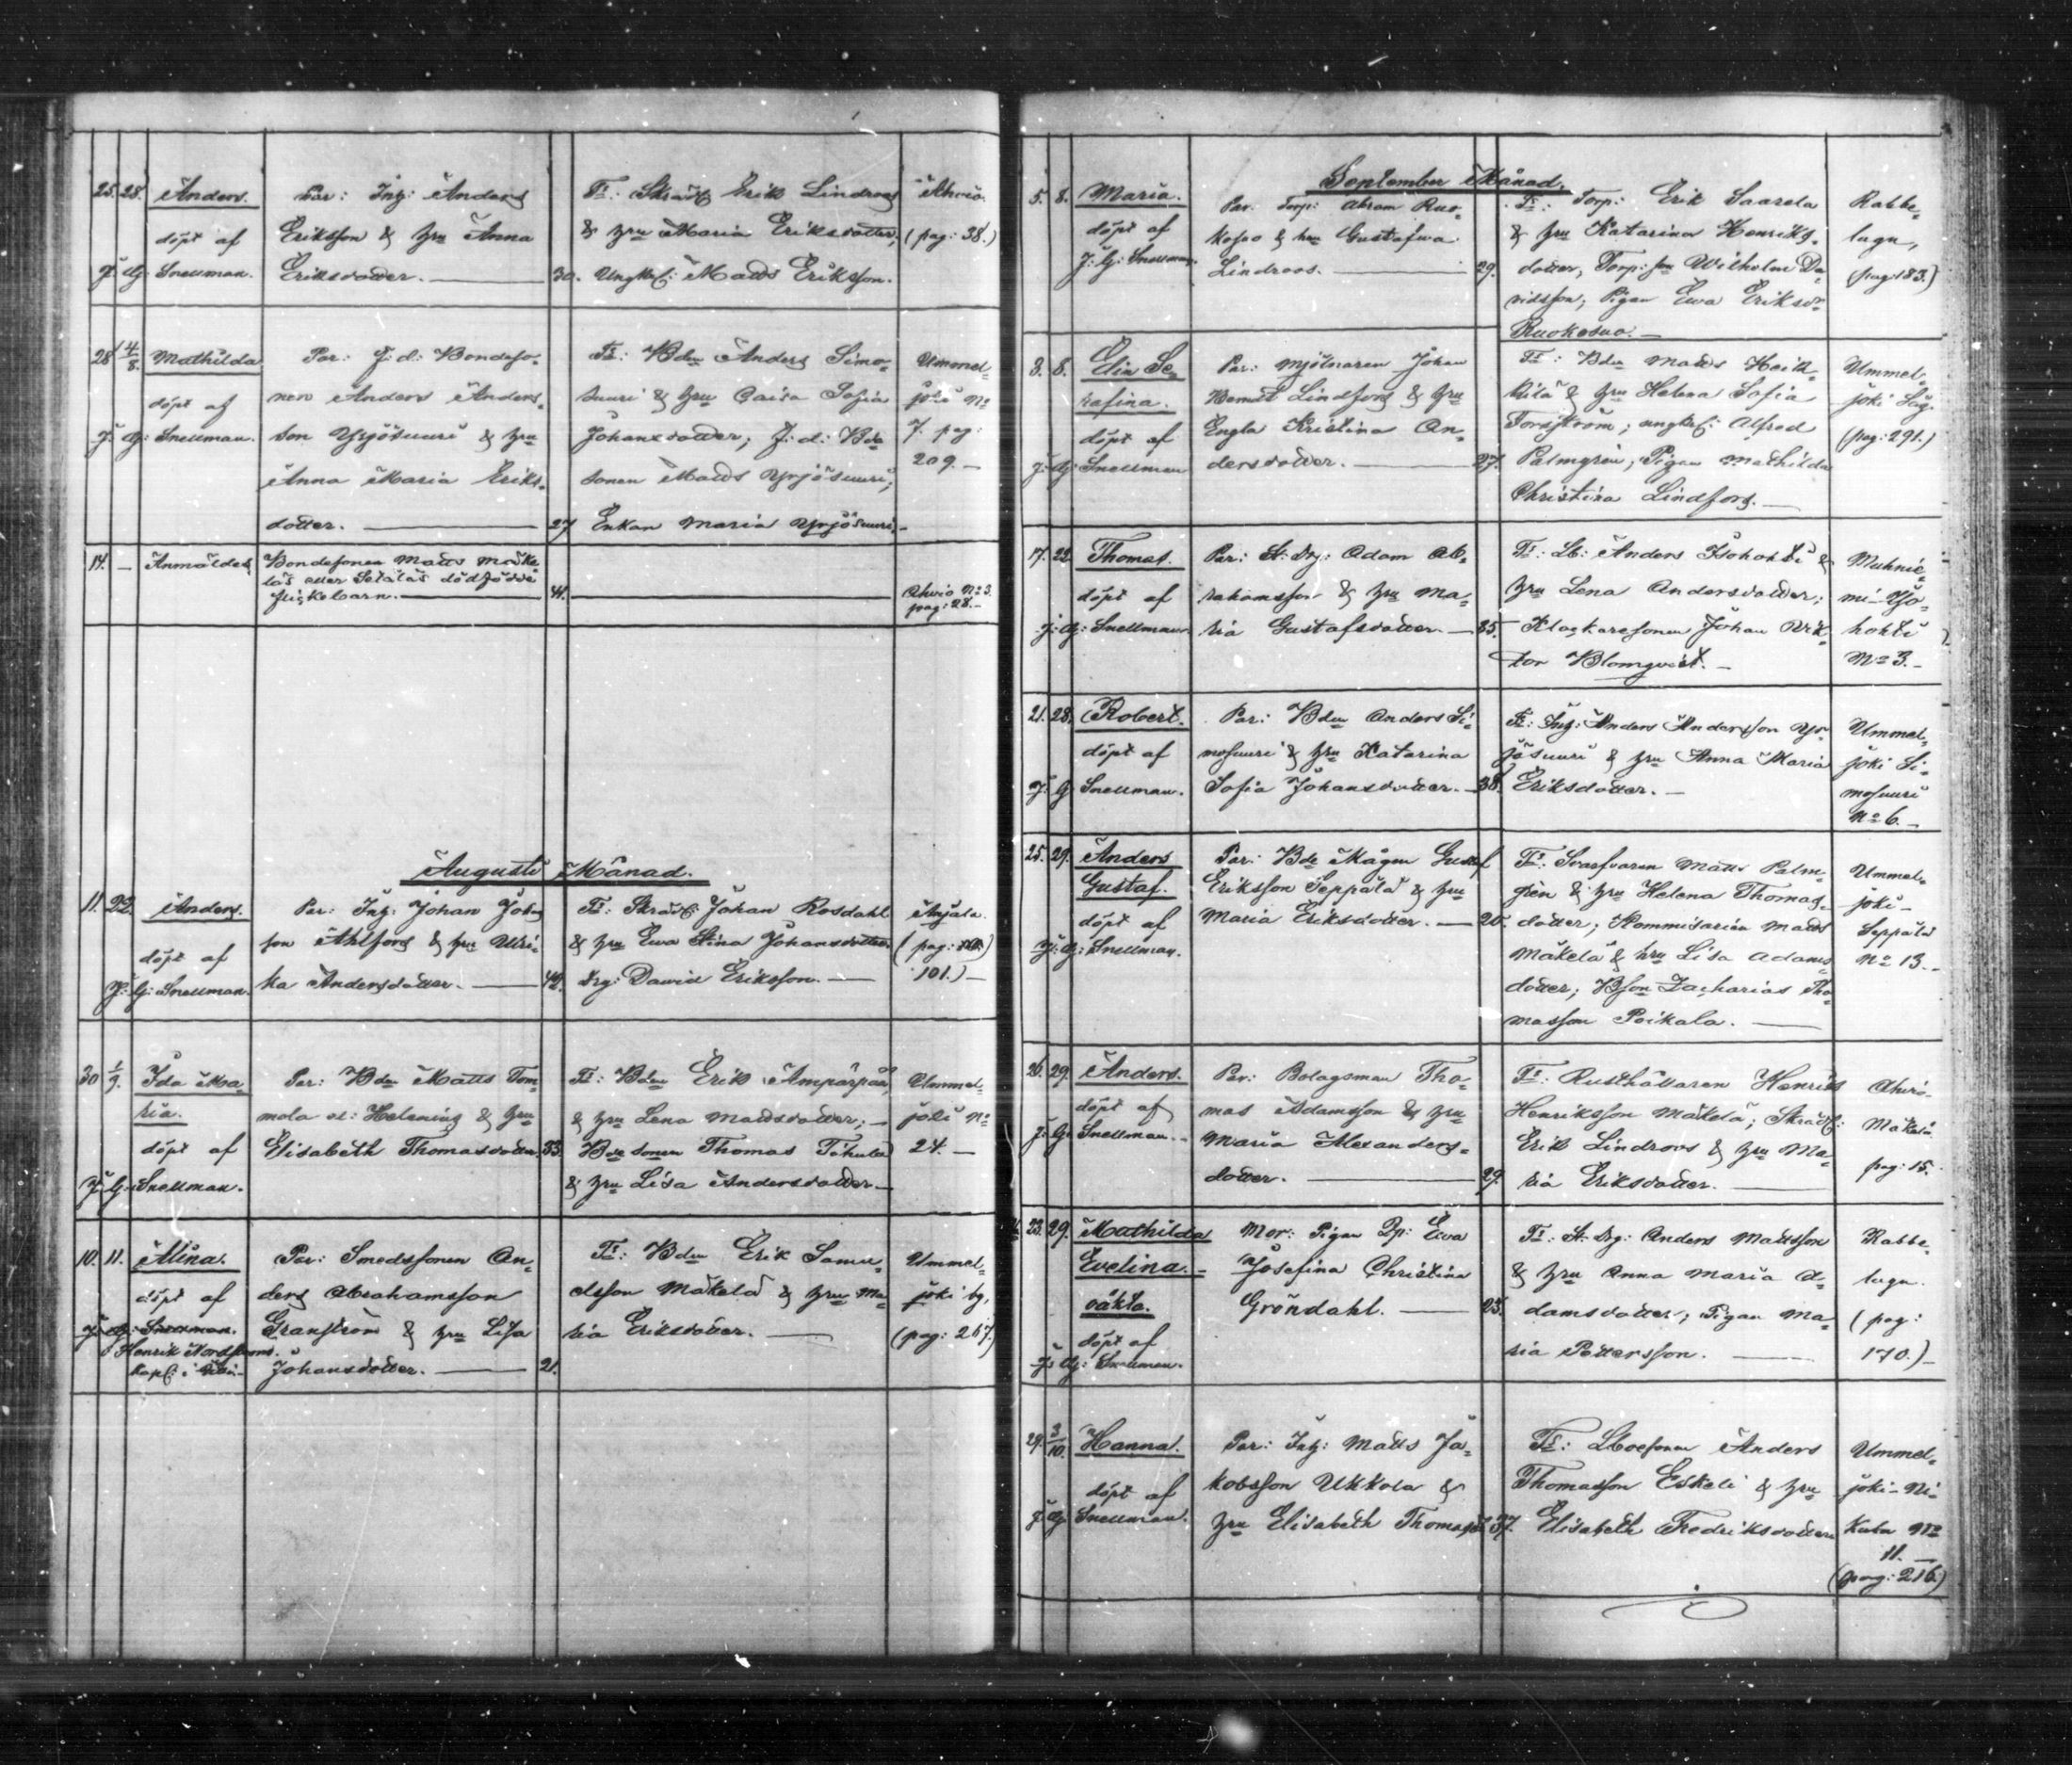 25. 28. Anders.
döpt af
J: G: Snellman.
Par: Inh: Anders
Eriksson & hru Anna
Eriksdotter. — 30.
Fr: Skrädd: Erik Lindroos
& hru Maria Eriksdotter;
Ungkl: Matts Eriksson.
Ahvio.
(pag: 38.)
28 4/8. Mathilda
döpt af
J: G: Snellman.
Par: f: d: Bondeso-
nen Anders Anders-
son Yrjösuuri & hru
Anna Maria Eriks-
dotter. — 27
Fr: Bdn Anders Simo-
suuri & hru Caisa Sofia
Johansdotter; f: d: Bde
sonen Matts Yrjösuuri;
Enkan Maria Yrjösuuri.
Ummel-
joki No
7. pag:
209. —
14. — Anmäldes
Bondesonen Matts Mäke-
läs eller Setäläs dödfödde
flickebarn. — 41.
Ahvio No 3.
pag: 28. —
Augusti Månad.
11. 22. Anders.
döpt af
J: G: Snellman.
Par: Inh: Johan Johns-
son Ahlfors & hru Ulri-
ka Andersdotter. — 42.
Fr: Skrädd: Johan Rosdahl
& hru Ewa Stina Johansdotter.
drg: David Eriksson. —
Anjala.
(pag:
101.) —
30 1/9. Ida Ma-
ria.
döpt af
J: G: Snellman.
Par: Bdn Matts Tom-
mola el: Helening & hru
Elisabeth Thomasdotter. 33.
Fr: Bdn Erik Ampärpää,
& hru Lena Mattsdotter; —
Bde sonen Thomas Tihula
& hru Lisa Andersdotter —
Ummel-
joki No
24. —
10. 11. Alina.
döpt af
J: G: Snellman.
Henrik Nordström.
Kapl: i
Par: Smedssonen An-
ders Abrahamsson
Granström & hru Lisa
Johansdotter. — 21.
Fr: Bdn Erik Samu-
elsson Mäkelä & hru Ma-
ria Eriksdotter. —
Ummel-
joki by,
(pag: 267.)
September Månad.
5. 8. Maria.
döpt af
J: G: Snellman.
Par: Torp: Abram Ruo-
kosuo & hru Gustafwa
Lindroos. — 29.
Fr: Torp: Erik Saarela
& hru Katarina Henriks-
dotter, Torp: son Wilhelm Da-
vidsson, Pigan Ewa Eriksdr
Ruokosuo. —
Rabbe-
lugn,
(pag: 183.)
3. 8. Elin Se-
rafina.
döpt af
J: G: Snellman
Par: Mjölnaren Johan
Lindfors & hru
Engla Kristina An-
dersdotter. — 27.
Fr: Bdn Matts Heik-
kilä & hru Helena Sofia
Forsström; ungkl: Alfred
Palmgrén, Pigan Mathilda
Christina Lindfors. —
Ummel-
joki Såg.
(pag: 291.)
17. 22. Thomas.
döpt af
J: G: Snellman.
Par: St: drg: Adam Ab-
rahamsson & hru Ma-
ria Gustafsdotter. — 35.
Fr: Lb: Anders Isohohti &
hru Lena Andersdotter;
Klockaresonen Johan Vik-
tor Blomqvist. —
Muhnie-
mi Iso-
hohti
No 3. —
21. 28. Robert.
döpt af
J: G: Snellman.
Par: Bdn Anders Si-
mosuuri & hru Katarina
Sofia Johansdotter. — 38.
Fr: Inh: Anders Andersson Yr-
jösuuri & hru Anna Maria
Eriksdotter. —
Ummel-
joki Si-
mosuuri
No 6. —
25. 29. Anders
Gustaf.
döpt af
J: G: Snellman.
Par: Bde Mågen Gustaf
Eriksson Seppälä & hru
Maria Eriksdotter. — 20.
Fr: Svarfvaren Matts Palm-
grén & hru Helena Thomas-
dotter; Kommisarien Matts
Mäkelä & hru Lisa Adams-
dotter; Bson Zacharias Tho-
masson Poikala. —
Ummel-
joki —
Seppälä
No 13. —
26. 29. Anders.
döpt af
J: G: Snellman. —
Par: Bolagsman Tho-
mas Adamsson & hru
Maria Alexanders-
dotter. — 29.
Fr: Rusthållaren Henrik
Henriksson Mäkelä; Skrädd:
Erik Lindroos & hru Ma-
ria Eriksdotter. —
Ahvio-
Mäkelä
pag: 15.
23. 29. Mathilda
Evelina. —
oäkta.
döpt af
J: G: Snellman.
Mor: Pigan Ewa
Josefina Christina
Gröndahl. — 25.
Fr: St: drg: Anders Mattsson
& hru Anna Maria A-
damsdotter; Pigan Ma-
ria Pettersson. —
Rabbe-
lugn.
(pag:
170.) —
29. 3/10. Hanna.
döpt af
J: G: Snellman.
Par: Inh: Matts Ja-
kobsson Ukkola &
hru Elisabeth Thomasd: 37.
Fr: Anders
Thomasson Eskeli & hru
Elisabeth Fredriksdotter
Ummel-
joki - Ni-
kula No
11. —
(pag: 216.)